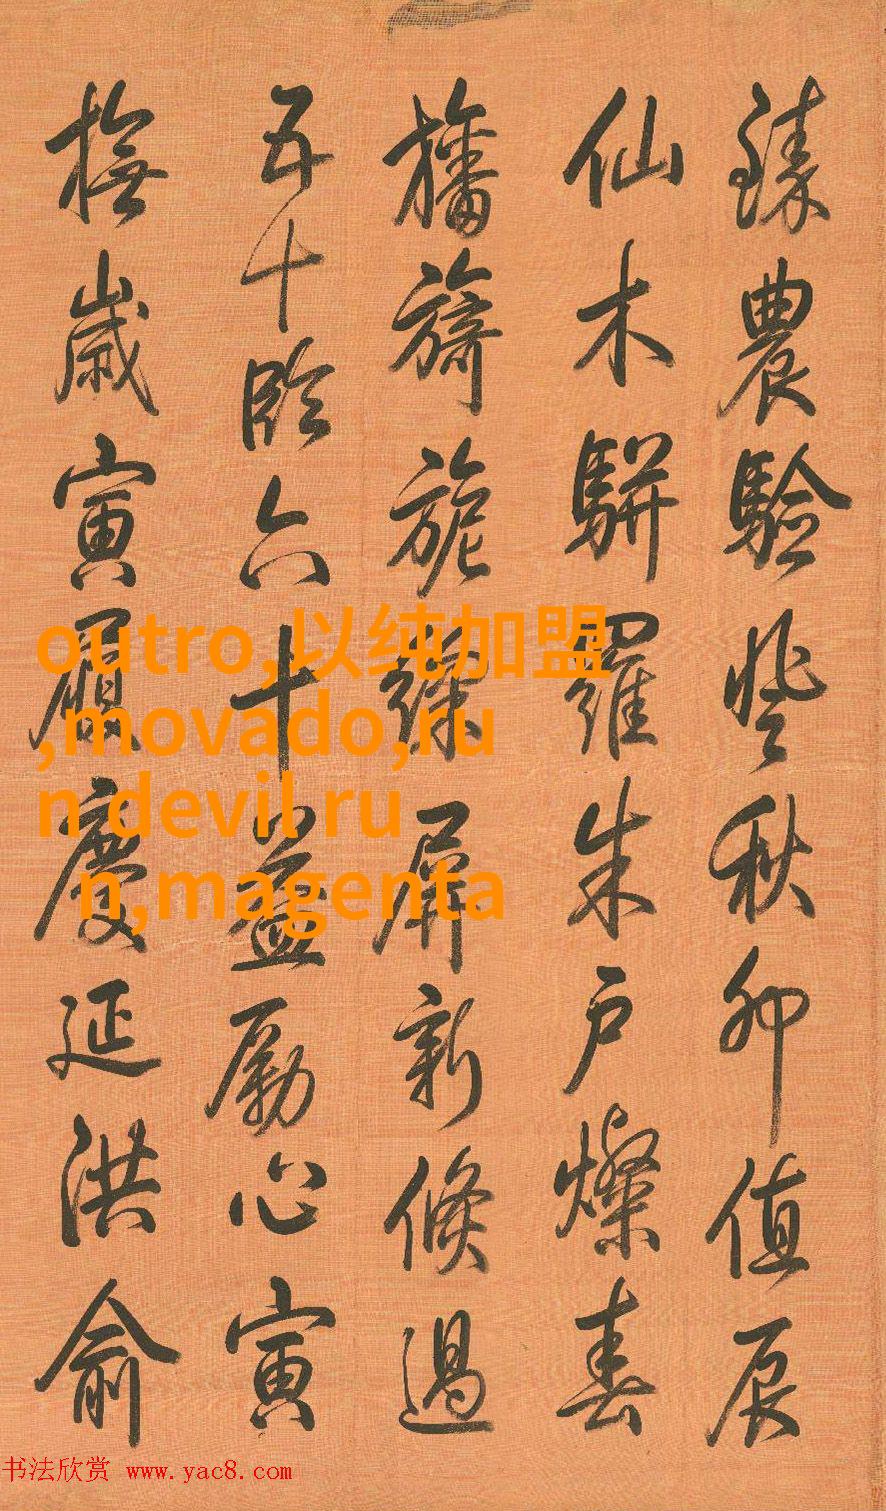 臻農驗登秋卯值辰
仙木駢羅朱戶燦春
旛旖旎綵屏新倏過
五十臨六十益勵心寅
撫歲寅履慶延洪俞
outro,以纯加盟
,movado,ru
n devil ru
n,magenta
书法欣赏 www.yac8.com